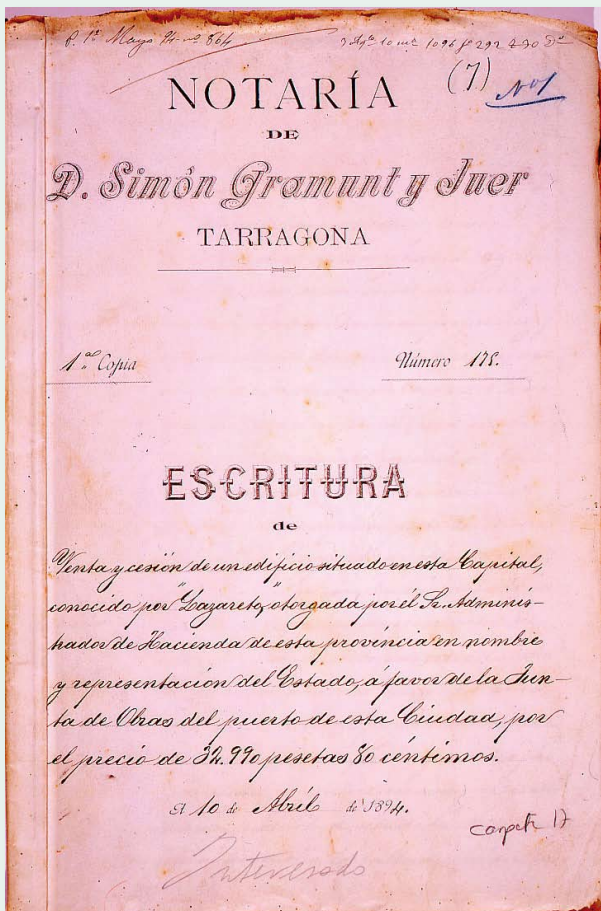 P. 1º Mayo 94 nº 864
(7)
NOTARÍA
DE
D. Simón Gramunt y Juer
TARRAGONA
1ª Copia
Número 178.
ESCRITURA
de
Venta y cesión de un edificio situado en esta Capital,
conocido por "Lazareto," otorgada por él Sr. Adminis-
trador de Hacienda de esta provincia en nombre
y representación del Estado, á favor de la Jun-
ta de Obras del puerto de esta Ciudad, por
el precio de 32.990 pesetas 80 céntimos.
A 10 de Abril de 1894.
carpeta 17